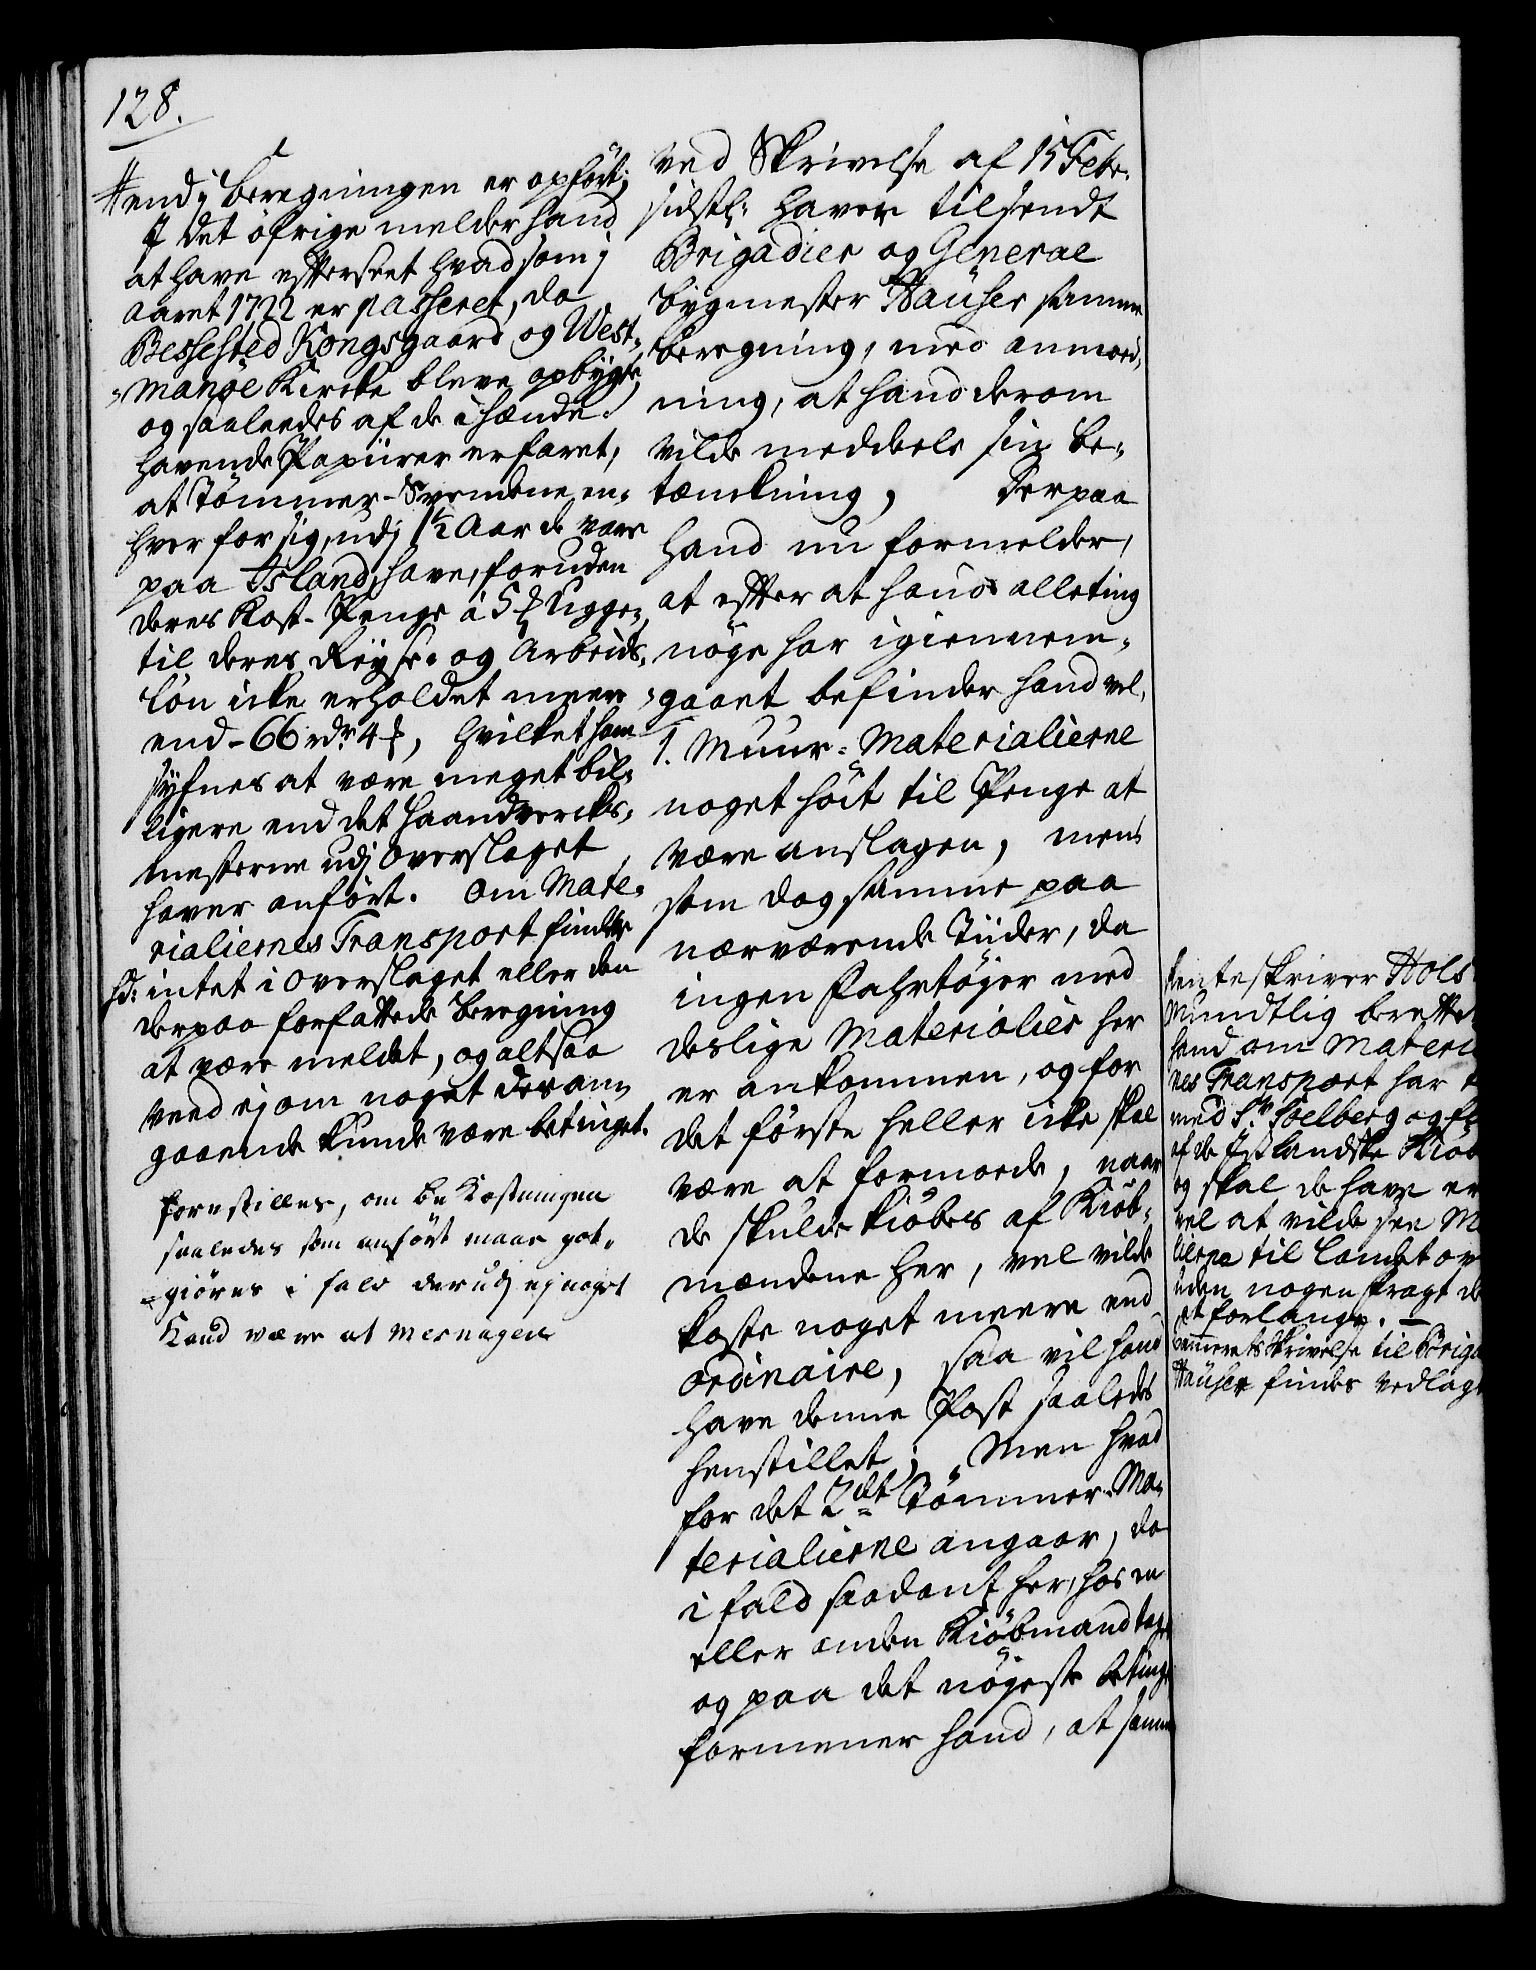 128.
# end i Beregningen er opført;
I det øfrige melder hand
at have efterseet hvad som i
Aaret 1722 er passeret, da
Bessested Kongsgaard og West-
manøe Kircke bleve opbygte,
og saaleedes af de i hænde-
havende Papiirer erfaret,
at Tømmer-Svendene en-
hver for sig, udj 1½ Aar de vare
paa Island, have, foruden
deres Kost-Penge à 5 ʒ Uggen
til deres Reyse- og Arbeids-
løn icke erholdet meere
end - 66 rdr 4 ʒ, hvilket ham
syfnes at være meget bil-
ligere end det Haandvercks-
mesterne udj Overslaget
haver anført. Om Mate-
rialiernes Transport findes
hd: intet i Overslaget eller den
derpaa forfattede Beregning
at være meldet, og altsaa
veed ej om noget deran-
gaaende kunde være betinget.
forestilles, om bekostningen
saaledes som anført maae got-
giøres i fald derudj ej noget
Kand være at menagere
ved Skrivelse af 15 Febr.
sidstl: haver tilsendt
Brigadier og General
bygmester Häuser samme
beregning, med anmod-
ning, at hand derom
vilde meddeele sin Be-
tænckning, Derpaa
hand nu formelder,
at efter at hand alleting
nøye har igiennem-
gaaet befinder hand vel,
1. Muur-Materialierne
noget høit til Penge at
være anslagen, men
som dog samme paa
nærværende Tiider, da
ingen Fahrtøyer med
deslige Materialier her
er ankommen, og for
det første heller icke skal
være at formoede, naar
de skulde kiøbes af Kiøb-
mændene her, vel vilde
koste noget meere end
ordinaire, saa vil hand
have denne Post saaledes
henstillet; Men hvad
for det 2det Tømmer-Ma-
terialierne angaar, da
i fald saadant her, hos en
eller anden Kiøbmand tages
og paa det nøyeste betinges
formener hand, at samme
Renteskriver Hols
Mundtlig berette
hand om Materi
nes Transport har
med Sr. Hoelberg og
af de Islandske Kiøb
og skal de have er
vel at vilde see M
lierne til Landet ov
uden nogen fragt de
at forlange. -
Cammerets Skrivelse til Briga
Häuser findes vedlagt